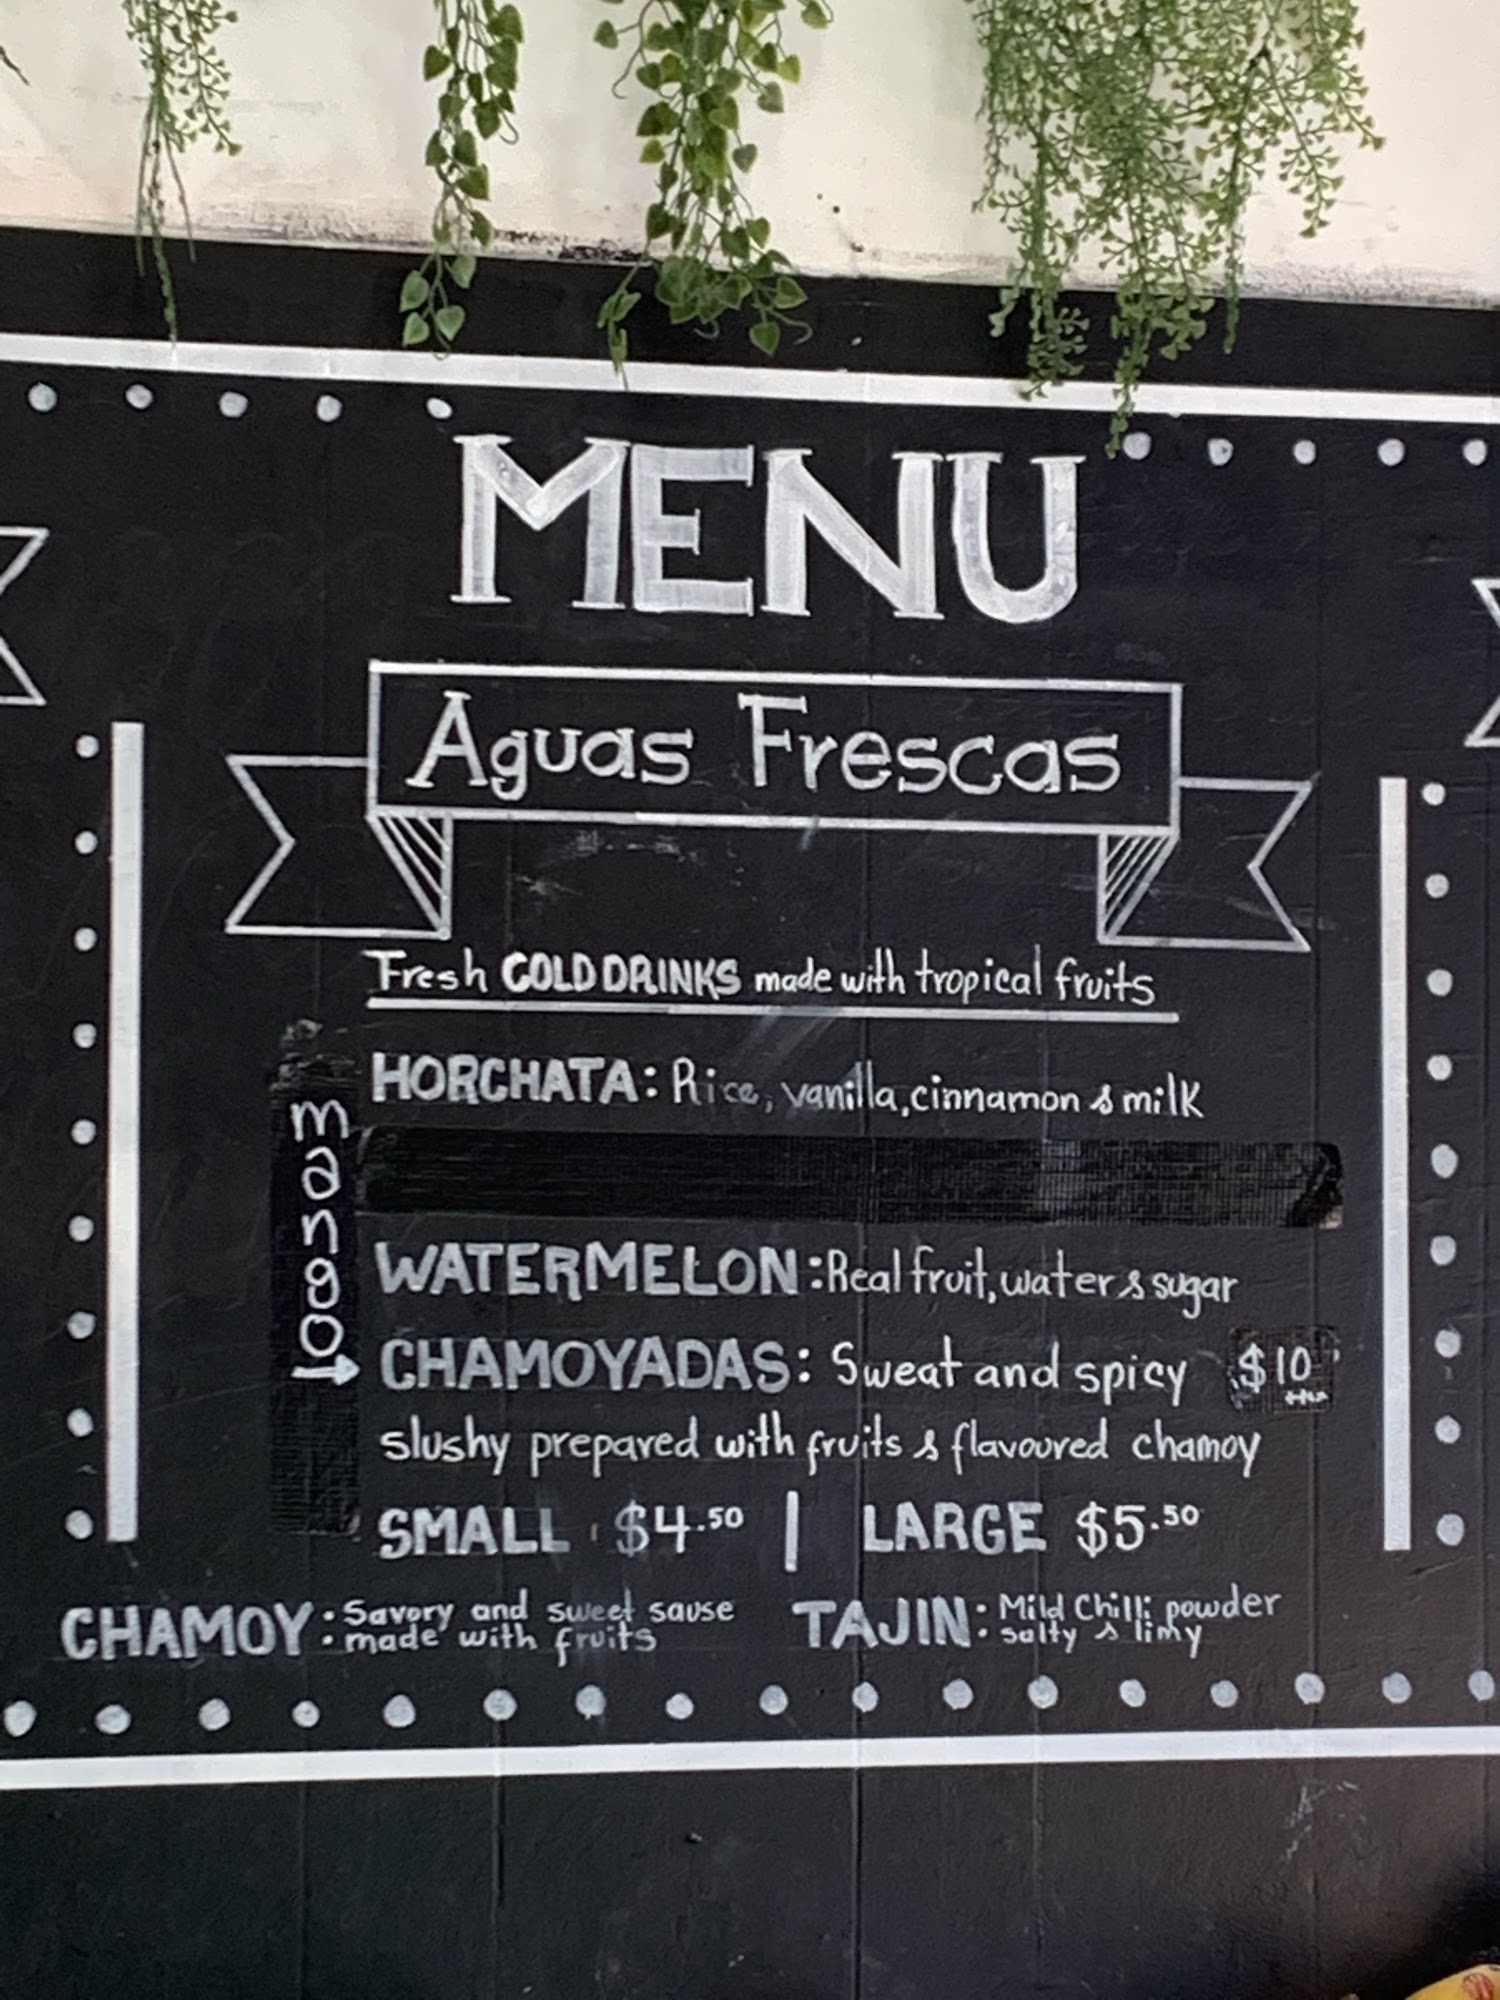 MENU
Aguas Frescas
Fresh COLD DRINKS made with tropical fruits
HORCHATA: Rice, vanilla, cinnamon & milk
mango
WATERMELON: Real fruit, water & sugar
CHAMOYADAS: Sweat and spicy $10
slushy prepared with fruits & flavoured chamoy
SMALL $4.50 | LARGE $5.50
CHAMOY: Savory and sweet sause
made with fruits
TAJIN: Mild Chilli powder
salty & limy